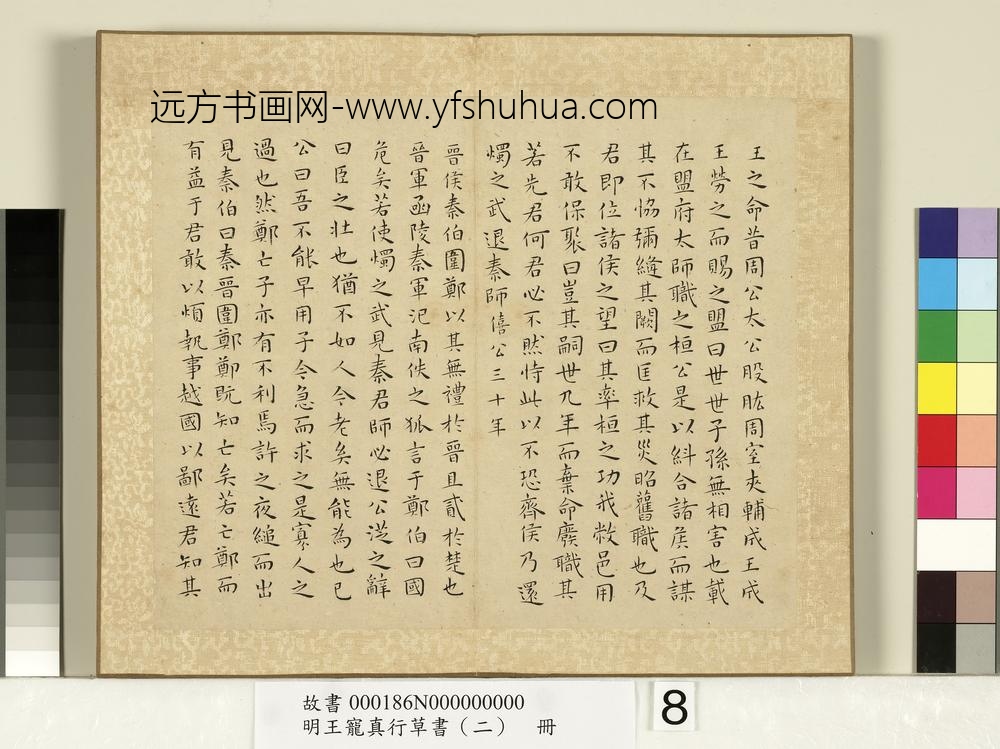 远方书画网-www.yfshuhua.com
王之命昔周公太公股肱周室夾輔成王成
王勞之而賜之盟曰世世子孫無相害也載
在盟府太師職之桓公是以糾合諸侯而謀
其不恊彌縫其闕而匡救其災昭舊職也及
君即位諸侯之望曰其率桓之功我敝邑用
不敢保聚曰豈其嗣世九年而棄命廢職其
若先君何君必不然恃此以不恐齊侯乃還
燭之武退秦師僖公三十年
晉侯秦伯圍鄭以其無禮於晉且貳於楚也
晉軍函陵秦軍汜南佚之狐言于鄭伯曰國
危矣若使燭之武見秦君師必退公從之辭
曰臣之壯也猶不如人今老矣無能為也已
公曰吾不能早用子今急而求之是寡人之
過也然鄭亡子亦有不利焉許之夜縋而出
見秦伯曰秦晉圍鄭鄭既知亡矣若亡鄭而
有益于君敢以煩執事越國以鄙遠君知其
故書000186N000000000
明王寵真行草書（二） 冊
8